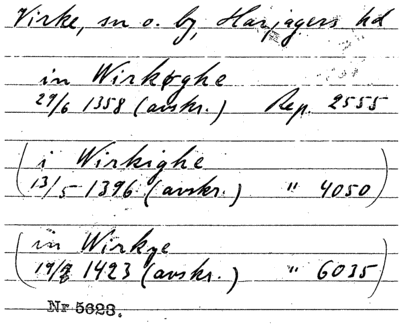 Virke, sn o. by, Harjagers hd
in Wirkøghe
29/6 1358 (avskr.) Rep. 2555
(i Wirkighe
13/5 1396 (avskr.) " 4050)
(in Wirkye
1423 (avskr.) " 6035)
Nr 5623.